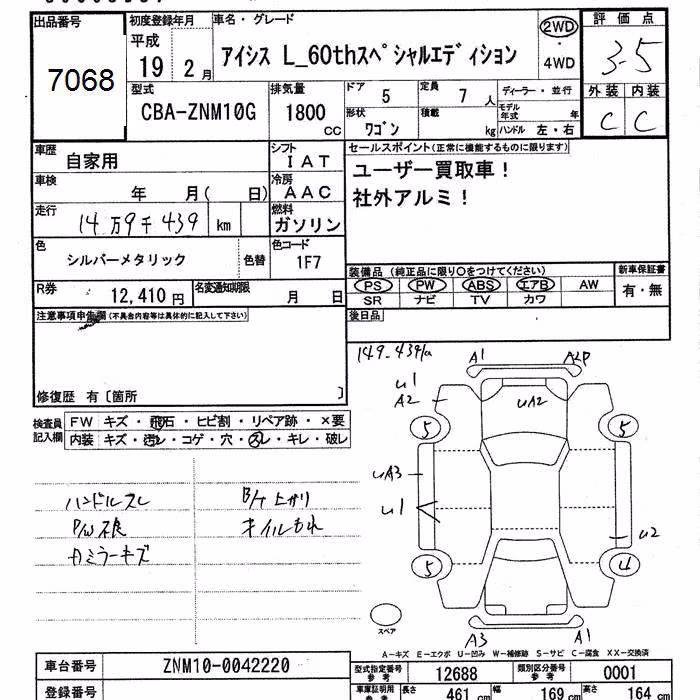 出品番号
7068
初度登録年月
平成
19 2 月
車名・グレード
アイシス L_60thスペシャルエディション
2WD
・
4WD
評価点
3.5
外装 内装
C C
型式
CBA-ZNM10G
排気量
1800
CC
ドア
5
定員
7 人
形状
ワゴン
積載
kg
ディーラー・並行
モデル
年式 年
ハンドル 左・右
車歴
自家用
シフト
I A T
車検
年 月( 日)
冷房
A A C
走行
14万9千439 km
燃料
ガソリン
色
シルバーメタリック
色替
色コード
1F7
R券
12,410 円
名変通知期限
月 日
セールスポイント(正常に機能するものに限ります)
ユーザー買取車！
社外アルミ！
装備品 (純正品に限り○をつけてください)
PS PW ABS エアB AW
SR ナビ TV カワ
新車保証書
有・無
後日品
注意事項申告欄(不具合内容等は具体的に記入して下さい)
修復歴 有〔箇所 〕
検査員
記入欄
FW キズ・飛石・ヒビ割・リペア跡・×要
内装 キズ・汚レ・コゲ・穴・スレ・キレ・破レ
ハンドルスレ
P/W不良
カミラーキズ
B/T上ガリ
オイルもれ
149-439
A1
A2P
U1
A2
UA2
5
5
UA3
U1
U2
5
4
スペア
A3
A1
A-キズ E-エクボ U-凹み W-補修跡 S-サビ C-腐食 XX-交換済
車台番号
ZNM10-0042220
登録番号
型式指定番号
参考
12688
類別区分番号
参考
0001
車庫証明用
参考
長さ
461 cm
幅
169 cm
高さ
164 cm